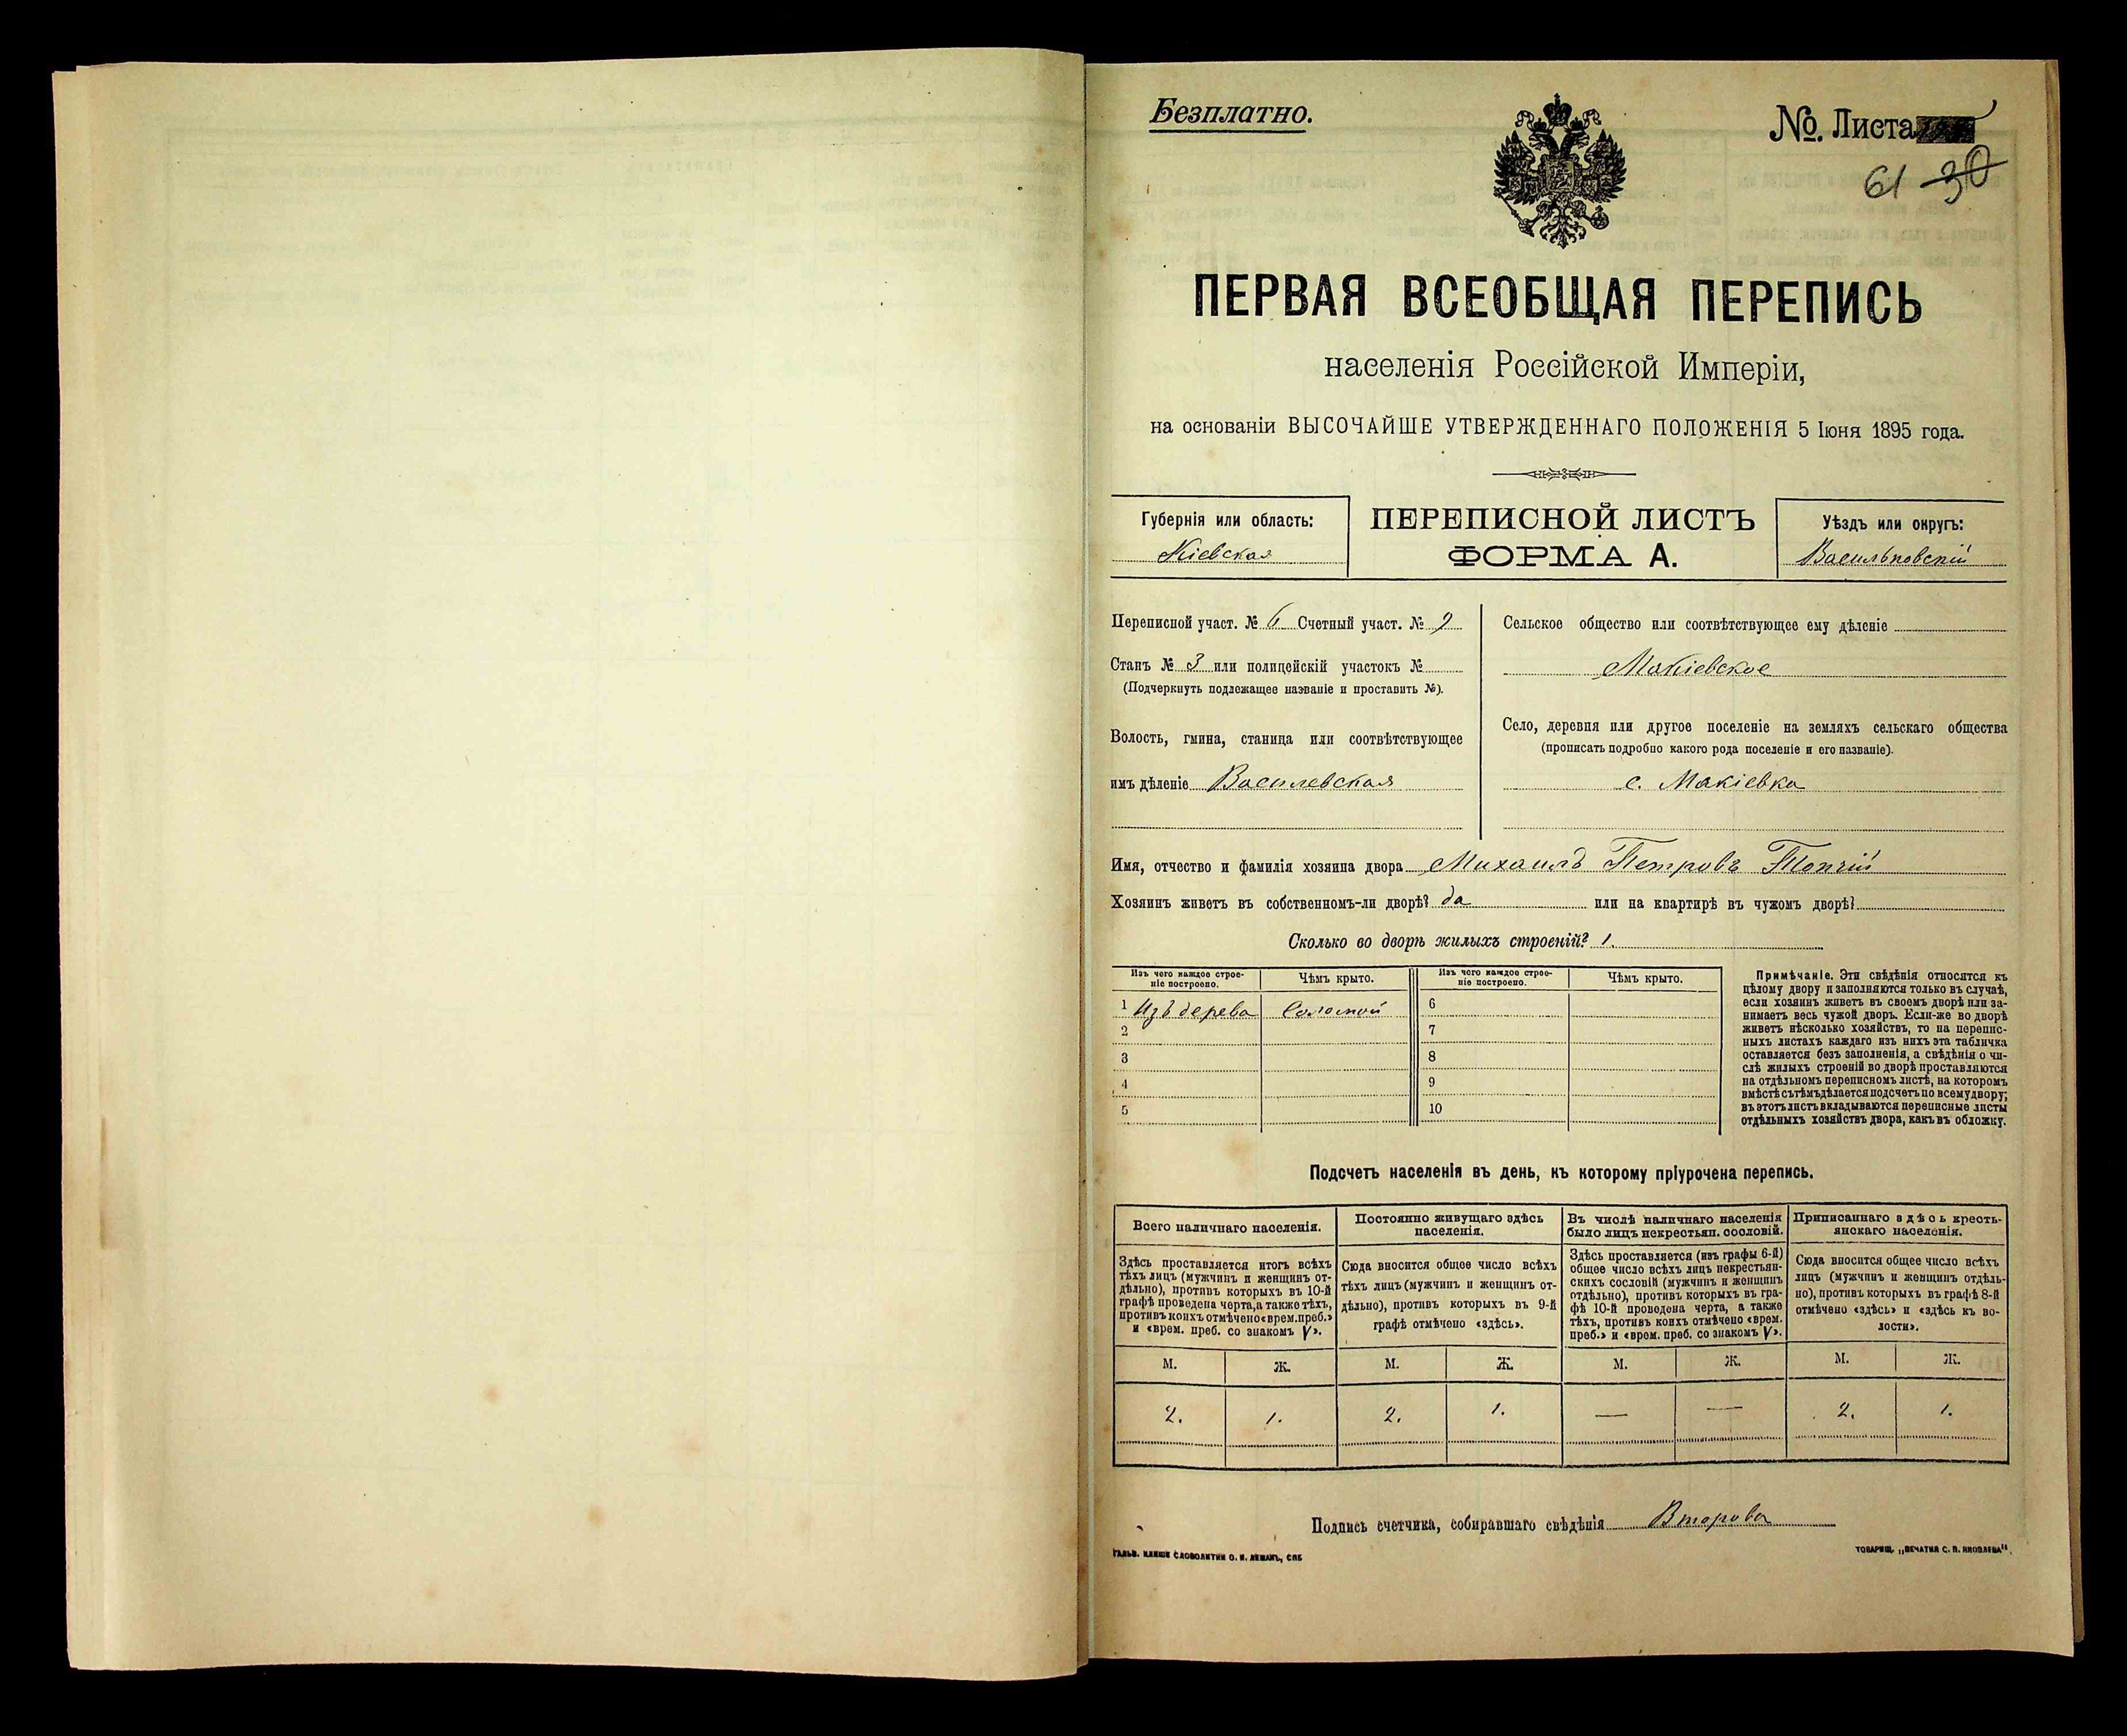 Безплатно.
№. Листа
61 30
ПЕРВАЯ ВСЕОБЩАЯ ПЕРЕПИСЬ
населенія Россійской Имперіи,
на основаніи ВЫСОЧАЙШЕ УТВЕРЖДЕННАГО ПОЛОЖЕНІЯ 5 Іюня 1895 года.
Губернія или область:
Кіевская
ПЕРЕПИСНОЙ ЛИСТЪ
ФОРМА А.
Уѣздъ или округъ:
Васильковскій
Переписной участ. № 6 Счетный участ. № 9
Станъ № 3 или полицейскій участокъ №
(Подчеркнуть подлежащее названіе и проставить №).
Волость, гмина, станица или соотвѣтствующее
имъ дѣленіе Василевская
Сельское общество или соотвѣтствующее ему дѣленіе
Макіевское
Село, деревня или другое поселеніе на земляхъ сельскаго общества
(прописать подробно какого рода поселеніе и его названіе).
с. Макіевка
Имя, отчество и фамилія хозяина двора Михаилъ Петровъ Топчій
Хозяинъ живетъ въ собственномъ-ли дворѣ? да или на квартирѣ въ чужомъ дворѣ?
Сколько во дворѣ жилыхъ строеній? 1.
Изъ чего каждое строе-
ніе построено.
Чѣмъ крыто.
Изъ чего каждое строе-
ніе построено.
Чѣмъ крыто.
1 Изъ дерева Соломой 6
2 7
3 8
4 9
5 10
Примѣчаніе. Эти свѣдѣнія относятся къ
цѣлому двору и заполняются только въ случаѣ,
если хозяинъ живетъ въ своемъ дворѣ или за-
нимаетъ весь чужой дворъ. Если-же во дворѣ
живетъ нѣсколько хозяйствъ, то на перепис-
ныхъ листахъ каждаго изъ нихъ эта табличка
оставляется безъ заполненія, а свѣдѣнія о чи-
слѣ жилыхъ строеній во дворѣ проставляются
на отдѣльномъ переписномъ листѣ, на которомъ
вмѣстѣ съ тѣмъ дѣлается подсчетъ по всему двору;
въ этотъ листъ вкладываются переписные листы
отдѣльныхъ хозяйствъ двора, какъ въ обложку.
Подсчетъ населенія въ день, къ которому пріурочена перепись.
Всего наличнаго населенія.
Здѣсь проставляется итогъ всѣхъ
тѣхъ лицъ (мужчинъ и женщинъ от-
дѣльно), противъ которыхъ въ 10-й
графѣ проведена черта, а также тѣхъ,
противъ коихъ отмѣчено «врем. преб.»
и «врем. преб. со знакомъ V».
Постоянно живущаго здѣсь
населенія.
Сюда вносится общее число всѣхъ
тѣхъ лицъ (мужчинъ и женщинъ от-
дѣльно), противъ которыхъ въ 9-й
графѣ отмѣчено «здѣсь».
Въ числѣ наличнаго населенія
было лицъ некрестьян. сословій.
Здѣсь проставляется (изъ графы 6-й)
общее число всѣхъ лицъ некрестьян-
скихъ сословій (мужчинъ и женщинъ
отдѣльно), противъ которыхъ въ гра-
фѣ 10-й проведена черта, а также
тѣхъ, противъ коихъ отмѣчено «врем.
преб.» и «врем. преб. со знакомъ V».
Приписаннаго здѣсь кресть-
янскаго населенія.
Сюда вносится общее число всѣхъ
лицъ (мужчинъ и женщинъ отдѣль-
но), противъ которыхъ въ графѣ 8-й
отмѣчено «здѣсь» и «здѣсь къ во-
лости».
М. Ж. М. Ж. М. Ж. М. Ж.
2. 1. 2. 1. — — 2. 1.
Подпись счетчика, собиравшаго свѣдѣнія Второва
ГАЛЬВ. КЛИШЕ СЛОВОЛИТНИ О. И. ЛЕМАНЪ, СПБ
ТОВАРИЩ. „ПЕЧАТНЯ С. П. ЯКОВЛЕВА“.